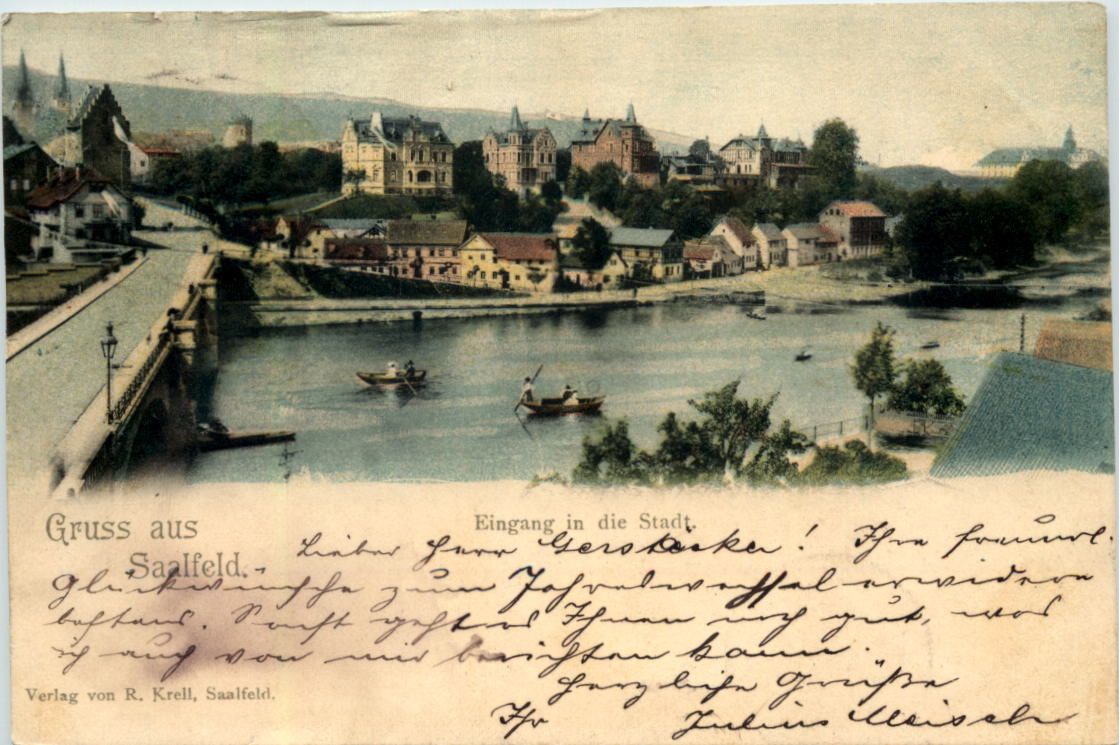 Gruss aus
Saalfeld.
Eingang in die Stadt.
Lieber Herr Gerstäcker! Ihre freundl.
Glückwünsche zum Jahreswechsel erwidere
bestens. Sonst geht es Ihnen noch gut, was
ich auch von mir berichten kann.
Herzliche Grüße
Ihr Julius Meisch
Verlag von R. Krell, Saalfeld.